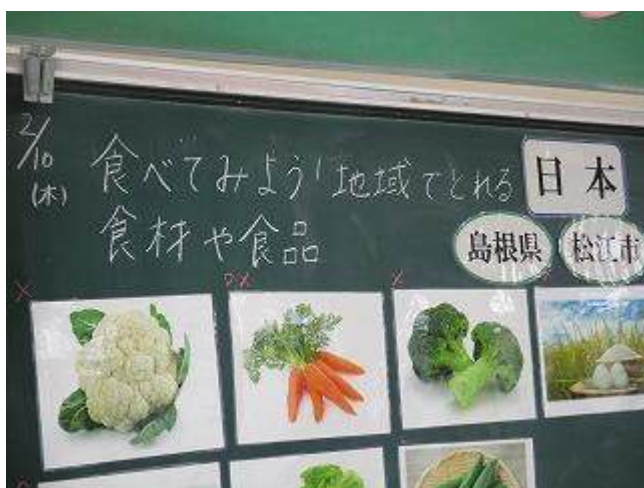 2/10
(木)
食べてみよう!地域でとれる
食材や食品
日本
島根県
松江市